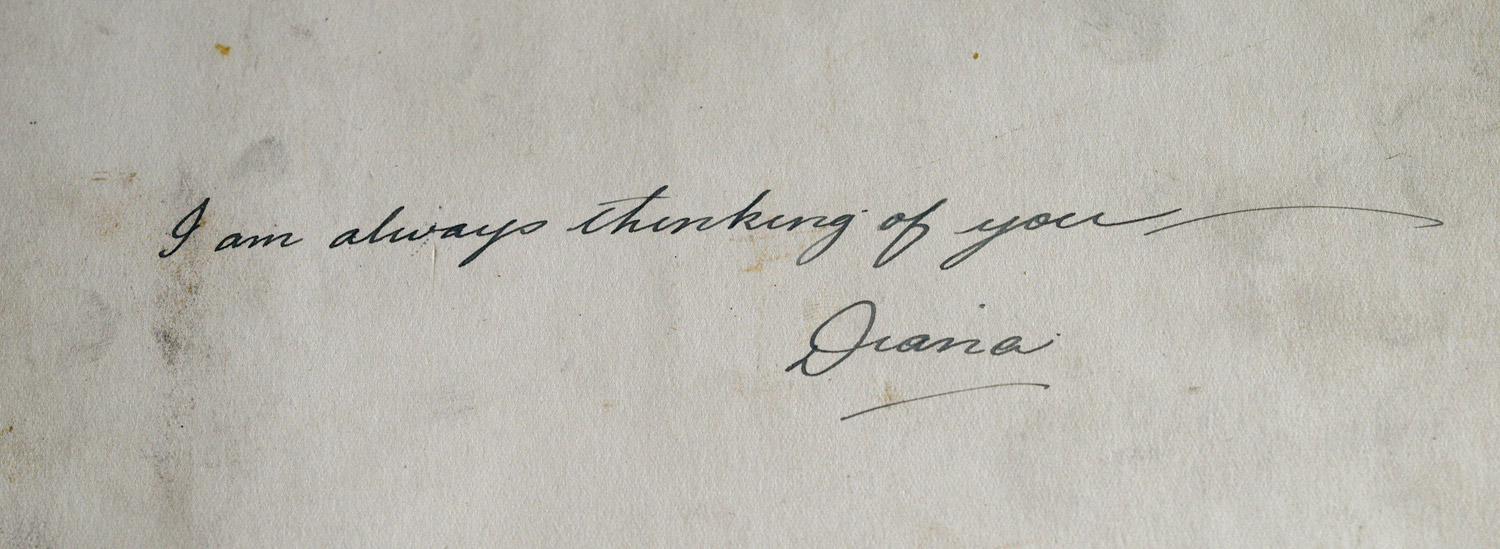 I am always thinking of you
Diana